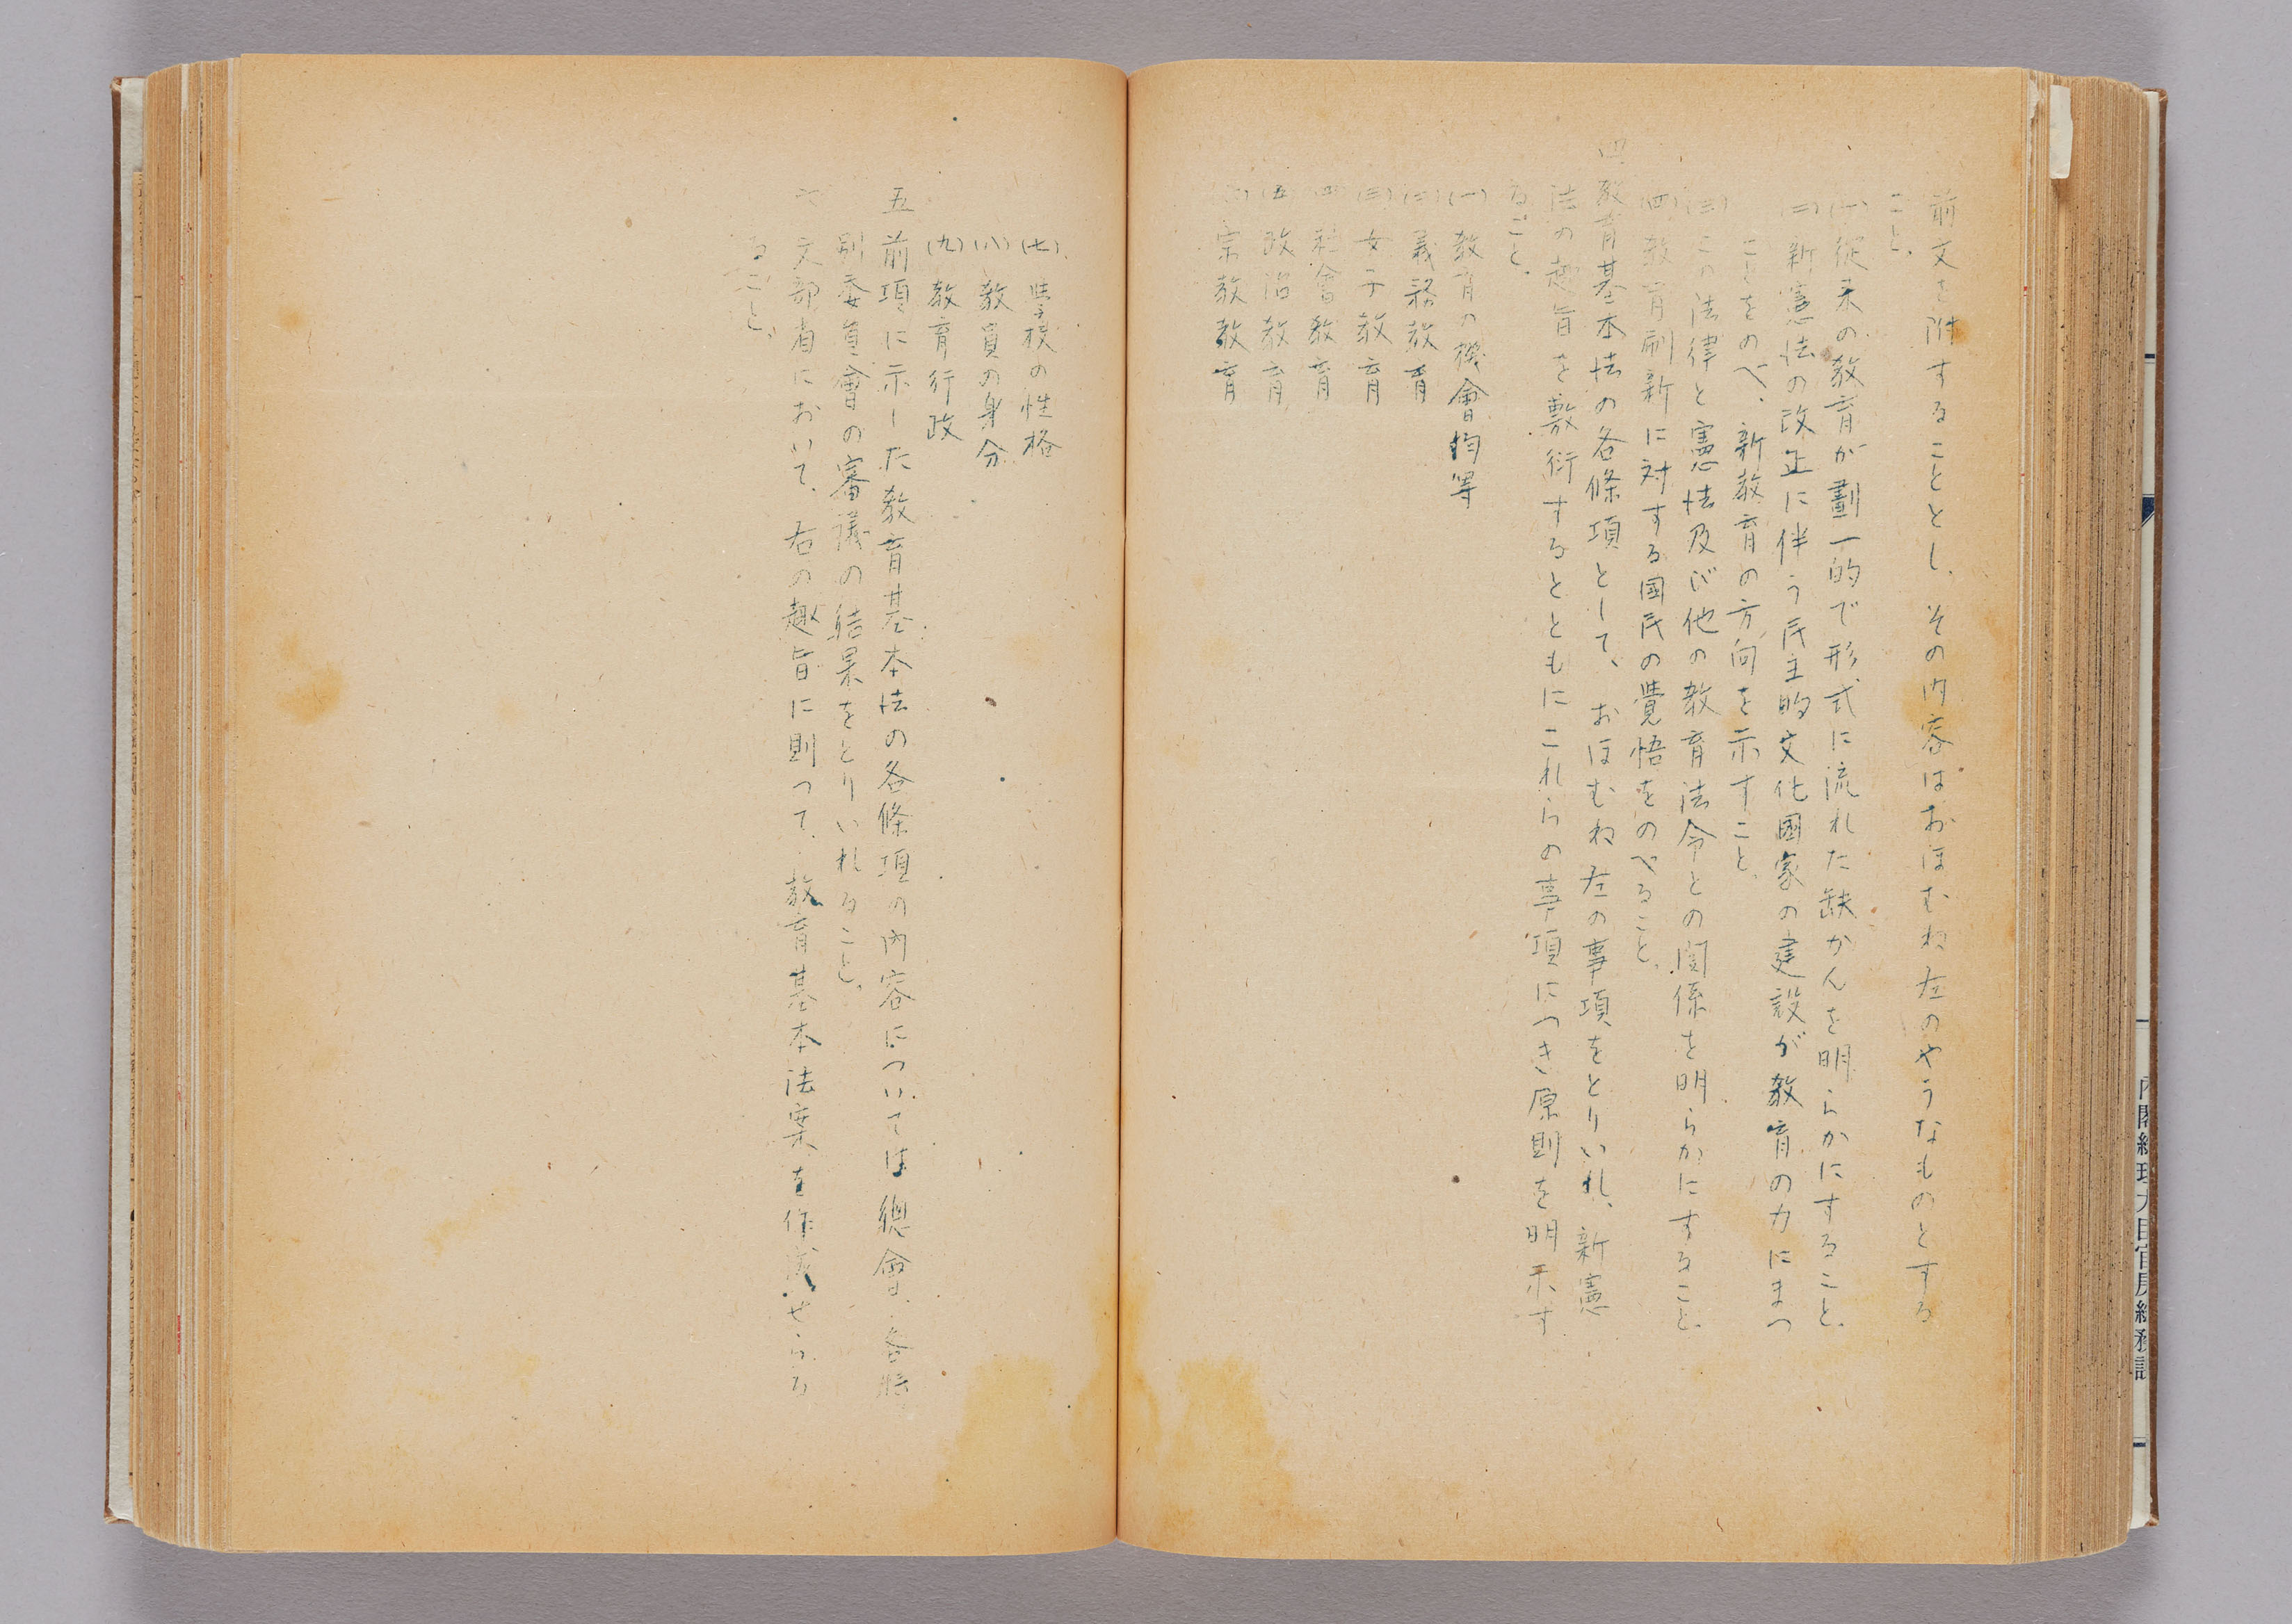 前文を附することとし、その内容はおほむね左のやうなものとする
こと。
(一)従来の教育が劃一的で形式に流れた缺かんを明らかにすること。
(二)新憲法の改正に伴う民主的文化國家の建設が教育の力にまつ
ことをのべ、新教育の方向を示すこと。
(三)この法律と憲法及び他の教育法令との関係を明らかにすること。
(四)教育刷新に対する国民の覺悟をのべること。
四 教育基本法の各條項として、おほむね左の事項をとりいれ、新憲
法の趣旨を敷衍するとともにこれらの事項につき原則を明示す
ること。
(一) 教育の機會均等
(二) 義務教育
(三) 女子教育
(四) 社會教育
(五) 政治教育
(六) 宗教教育
(七) 學校の性格
(八) 教員の身分
(九) 教育行政
五 前項に示した教育基本法の各條項の内容については總會、各特
別委員會の審議の結果をとりいれること。
六 文部省において、右の趣旨に則つて、教育基本法案を作成せらる
ること。
内閣總理大臣官房總務課